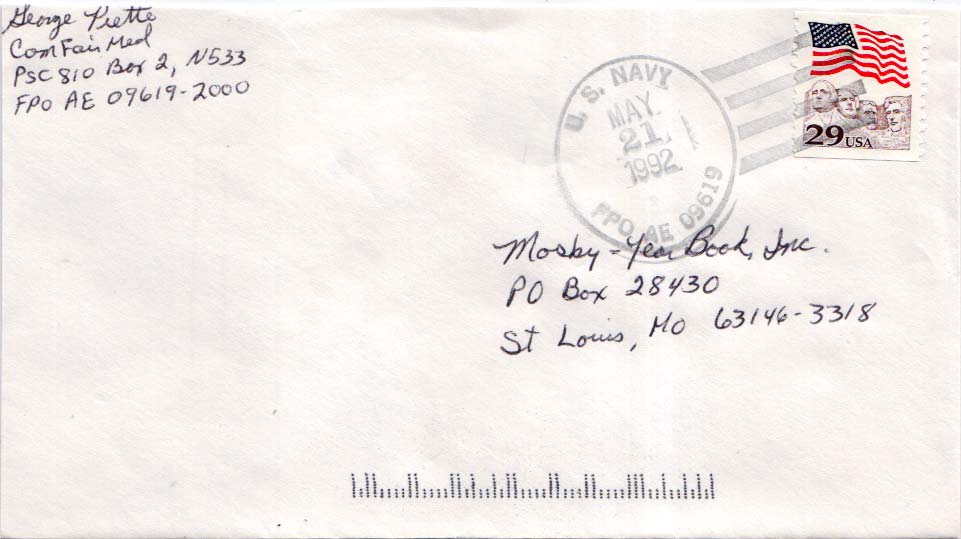 George Piette
ComFairMed
PSC 810 Box 2, N533
FPO AE 09619-2000
U. S. NAVY
MAY
21
1992
FPO AE 09619
29 USA
Mosby-Year Book, Inc.
PO Box 28430
St Louis, MO 63146-3318